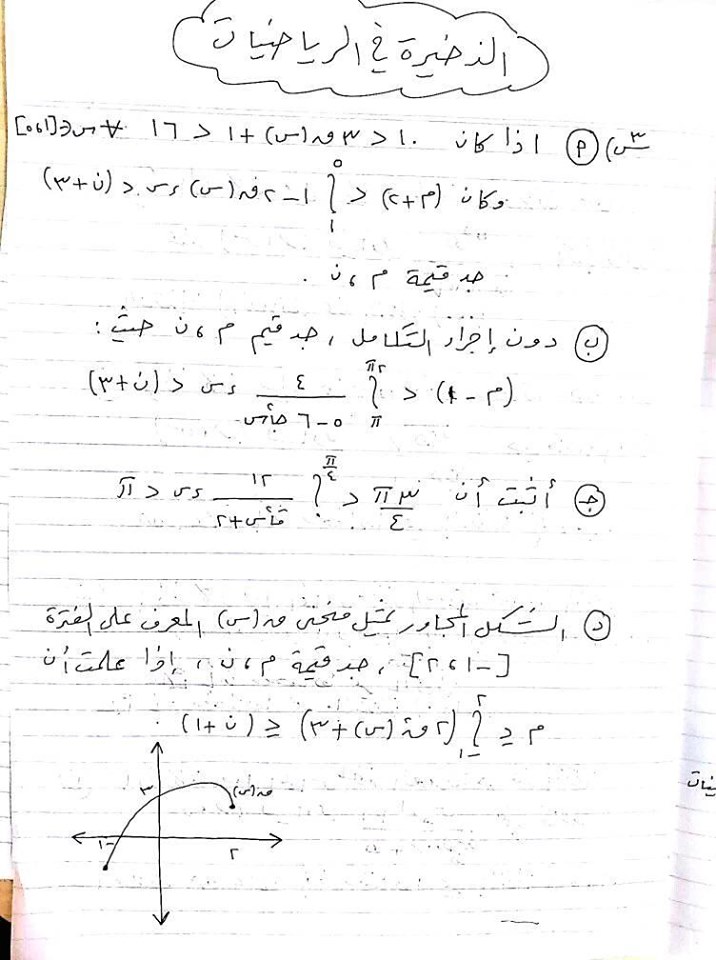 الذخيرة في الرياضيات
س٣) (م) اذا كان ١٠ < ٣ق(س) + ١ < ١٦ ∀ س∈[١،٥]
وكان (م+٢) < ∫₁⁵ ١ - ٢ق(س) ءس < (ن+٣)
جد قيمة م ، ن .
(ب) دون إجراء التكامل ، جد قيم م ، ن حيث :
(م - ١) < ∫ من π إلى ٢π ٤/(٥ - ٦ جأس) ءس < (ن+٣)
(ج) أثبت أن ٣π/٤ < ∫ من ٠ إلى π/٤ ١٢/(قأس+٢) ءس < π
(د) الشكل المجاور يمثل منحنى ق(س) المعرف على الفترة
[-١ ، ٢] ، جد قيمة م ، ن ، إذا علمت أن
م ≤ ∫ من -١ إلى ٢ (٢قَ(س) + ٣) ≤ (ن+١) .
٣
ق(س)
-١
٢